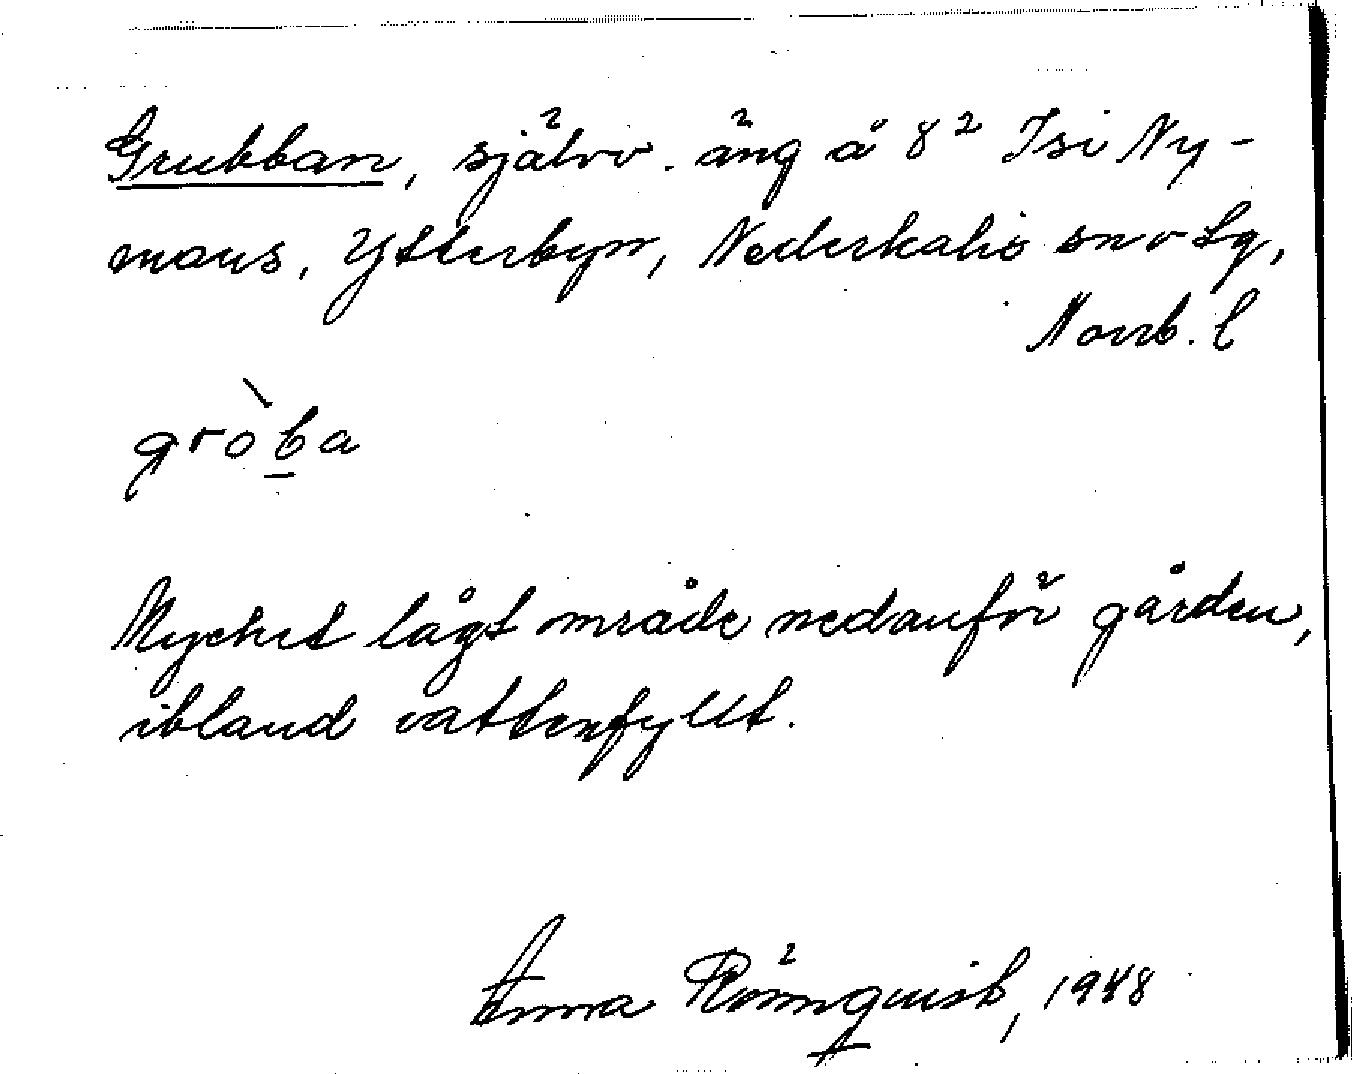 Grubban, självv. äng å 8² Isi Ny-
mans, Ytterbyn, Nederkalix sn o tg,
Norrb. l
gròba
Mycket lågt område nedanför gården,
ibland vattenfyllt.
Anna Rönnquist, 1948